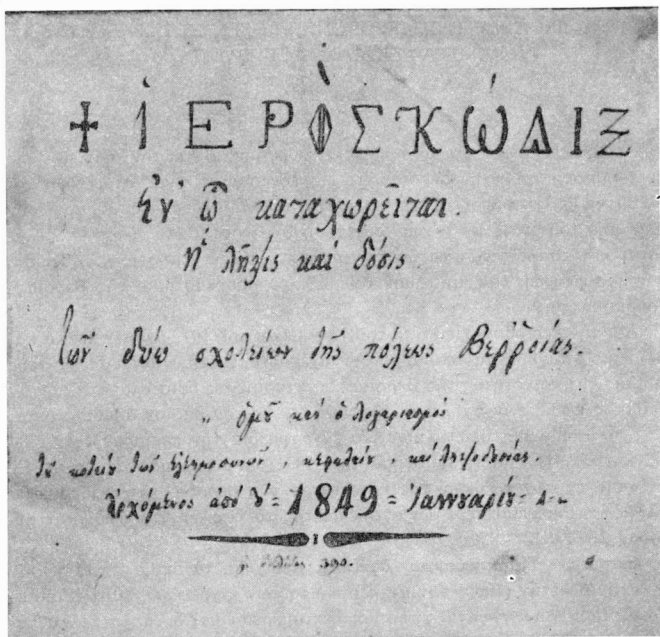 + ἹΕΡῸΣ ΚΏΔΙΞ
ἐν ᾧ καταχωρεῖται.
ἡ λῆψις καὶ δόσις.
τῶν δύω σχολείων τῆς πόλεως Βεῤῥοίας.
ὁμοῦ καὶ ὁ λογαριασμὸς
τοῦ κυτίου τῶν ἐλεημοσυνῶν, κεφαλείου, καὶ ληψοδοσίας.
ἀρχόμενος ἀπὸ = 1849 = Ἰαννουαρίου = 1 =
390.